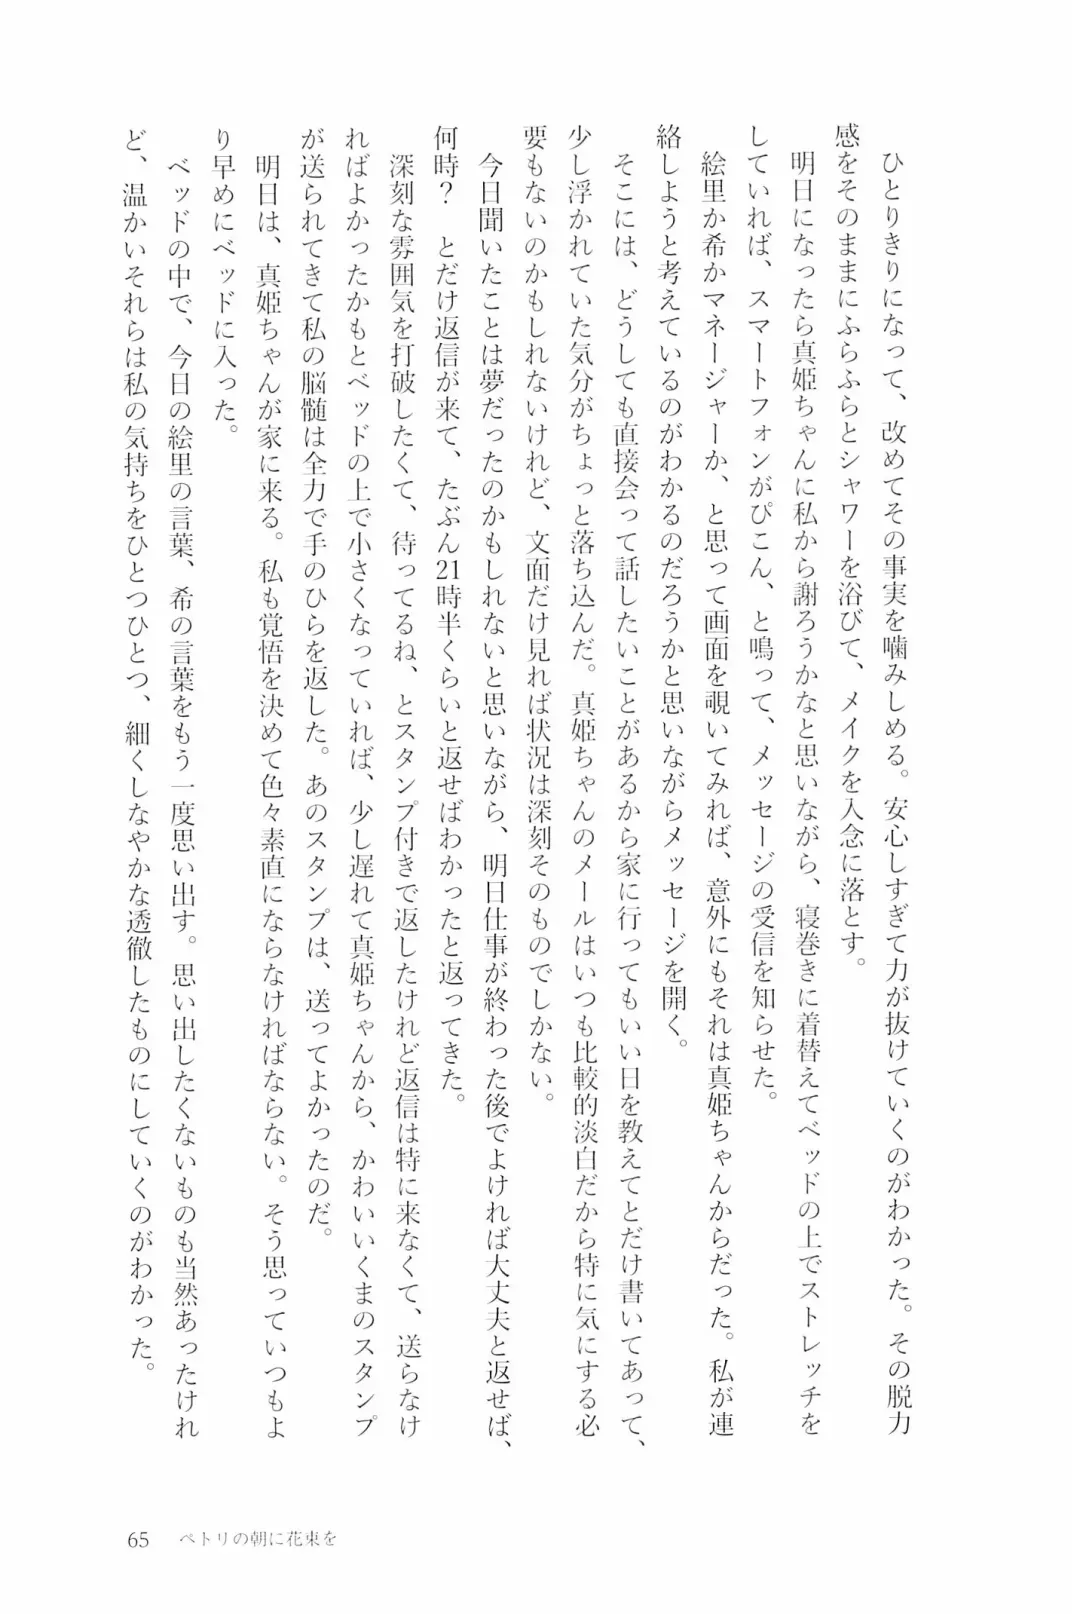 ひとりきりになって、改めてその事実を噛みしめる。安心しすぎて力が抜けていくのがわかった。その脱力
感をそのままにふらふらとシャワーを浴びて、メイクを入念に落とす。
明日になったら真姫ちゃんに私から謝ろうかなと思いながら、寝巻きに着替えてベッドの上でストレッチを
していれば、スマートフォンがぴこん、と鳴って、メッセージの受信を知らせた。
絵里か希かマネージャーか、と思って画面を覗いてみれば、意外にもそれは真姫ちゃんからだった。私が連
絡しようと考えているのがわかるのだろうかと思いながらメッセージを開く。
そこには、どうしても直接会って話したいことがあるから家に行ってもいい日を教えてとだけ書いてあって、
少し浮かれていた気分がちょっと落ち込んだ。真姫ちゃんのメールはいつも比較的淡白だから特に気にする必
要もないのかもしれないけれど、文面だけ見れば状況は深刻そのものでしかない。
今日聞いたことは夢だったのかもしれないと思いながら、明日仕事が終わった後でよければ大丈夫と返せば、
何時？　とだけ返信が来て、たぶん21時半くらいと返せばわかったと返ってきた。
深刻な雰囲気を打破したくて、待ってるね、とスタンプ付きで返したけれど返信は特に来なくて、送らなけ
ればよかったかもとベッドの上で小さくなっていれば、少し遅れて真姫ちゃんから、かわいいくまのスタンプ
が送られてきて私の脳髄は全力で手のひらを返した。あのスタンプは、送ってよかったのだ。
明日は、真姫ちゃんが家に来る。私も覚悟を決めて色々素直にならなければならない。そう思っていつもよ
り早めにベッドに入った。
ベッドの中で、今日の絵里の言葉、希の言葉をもう一度思い出す。思い出したくないものも当然あったけれ
ど、温かいそれらは私の気持ちをひとつひとつ、細くしなやかな透徹したものにしていくのがわかった。
65　ペトリの朝に花束を